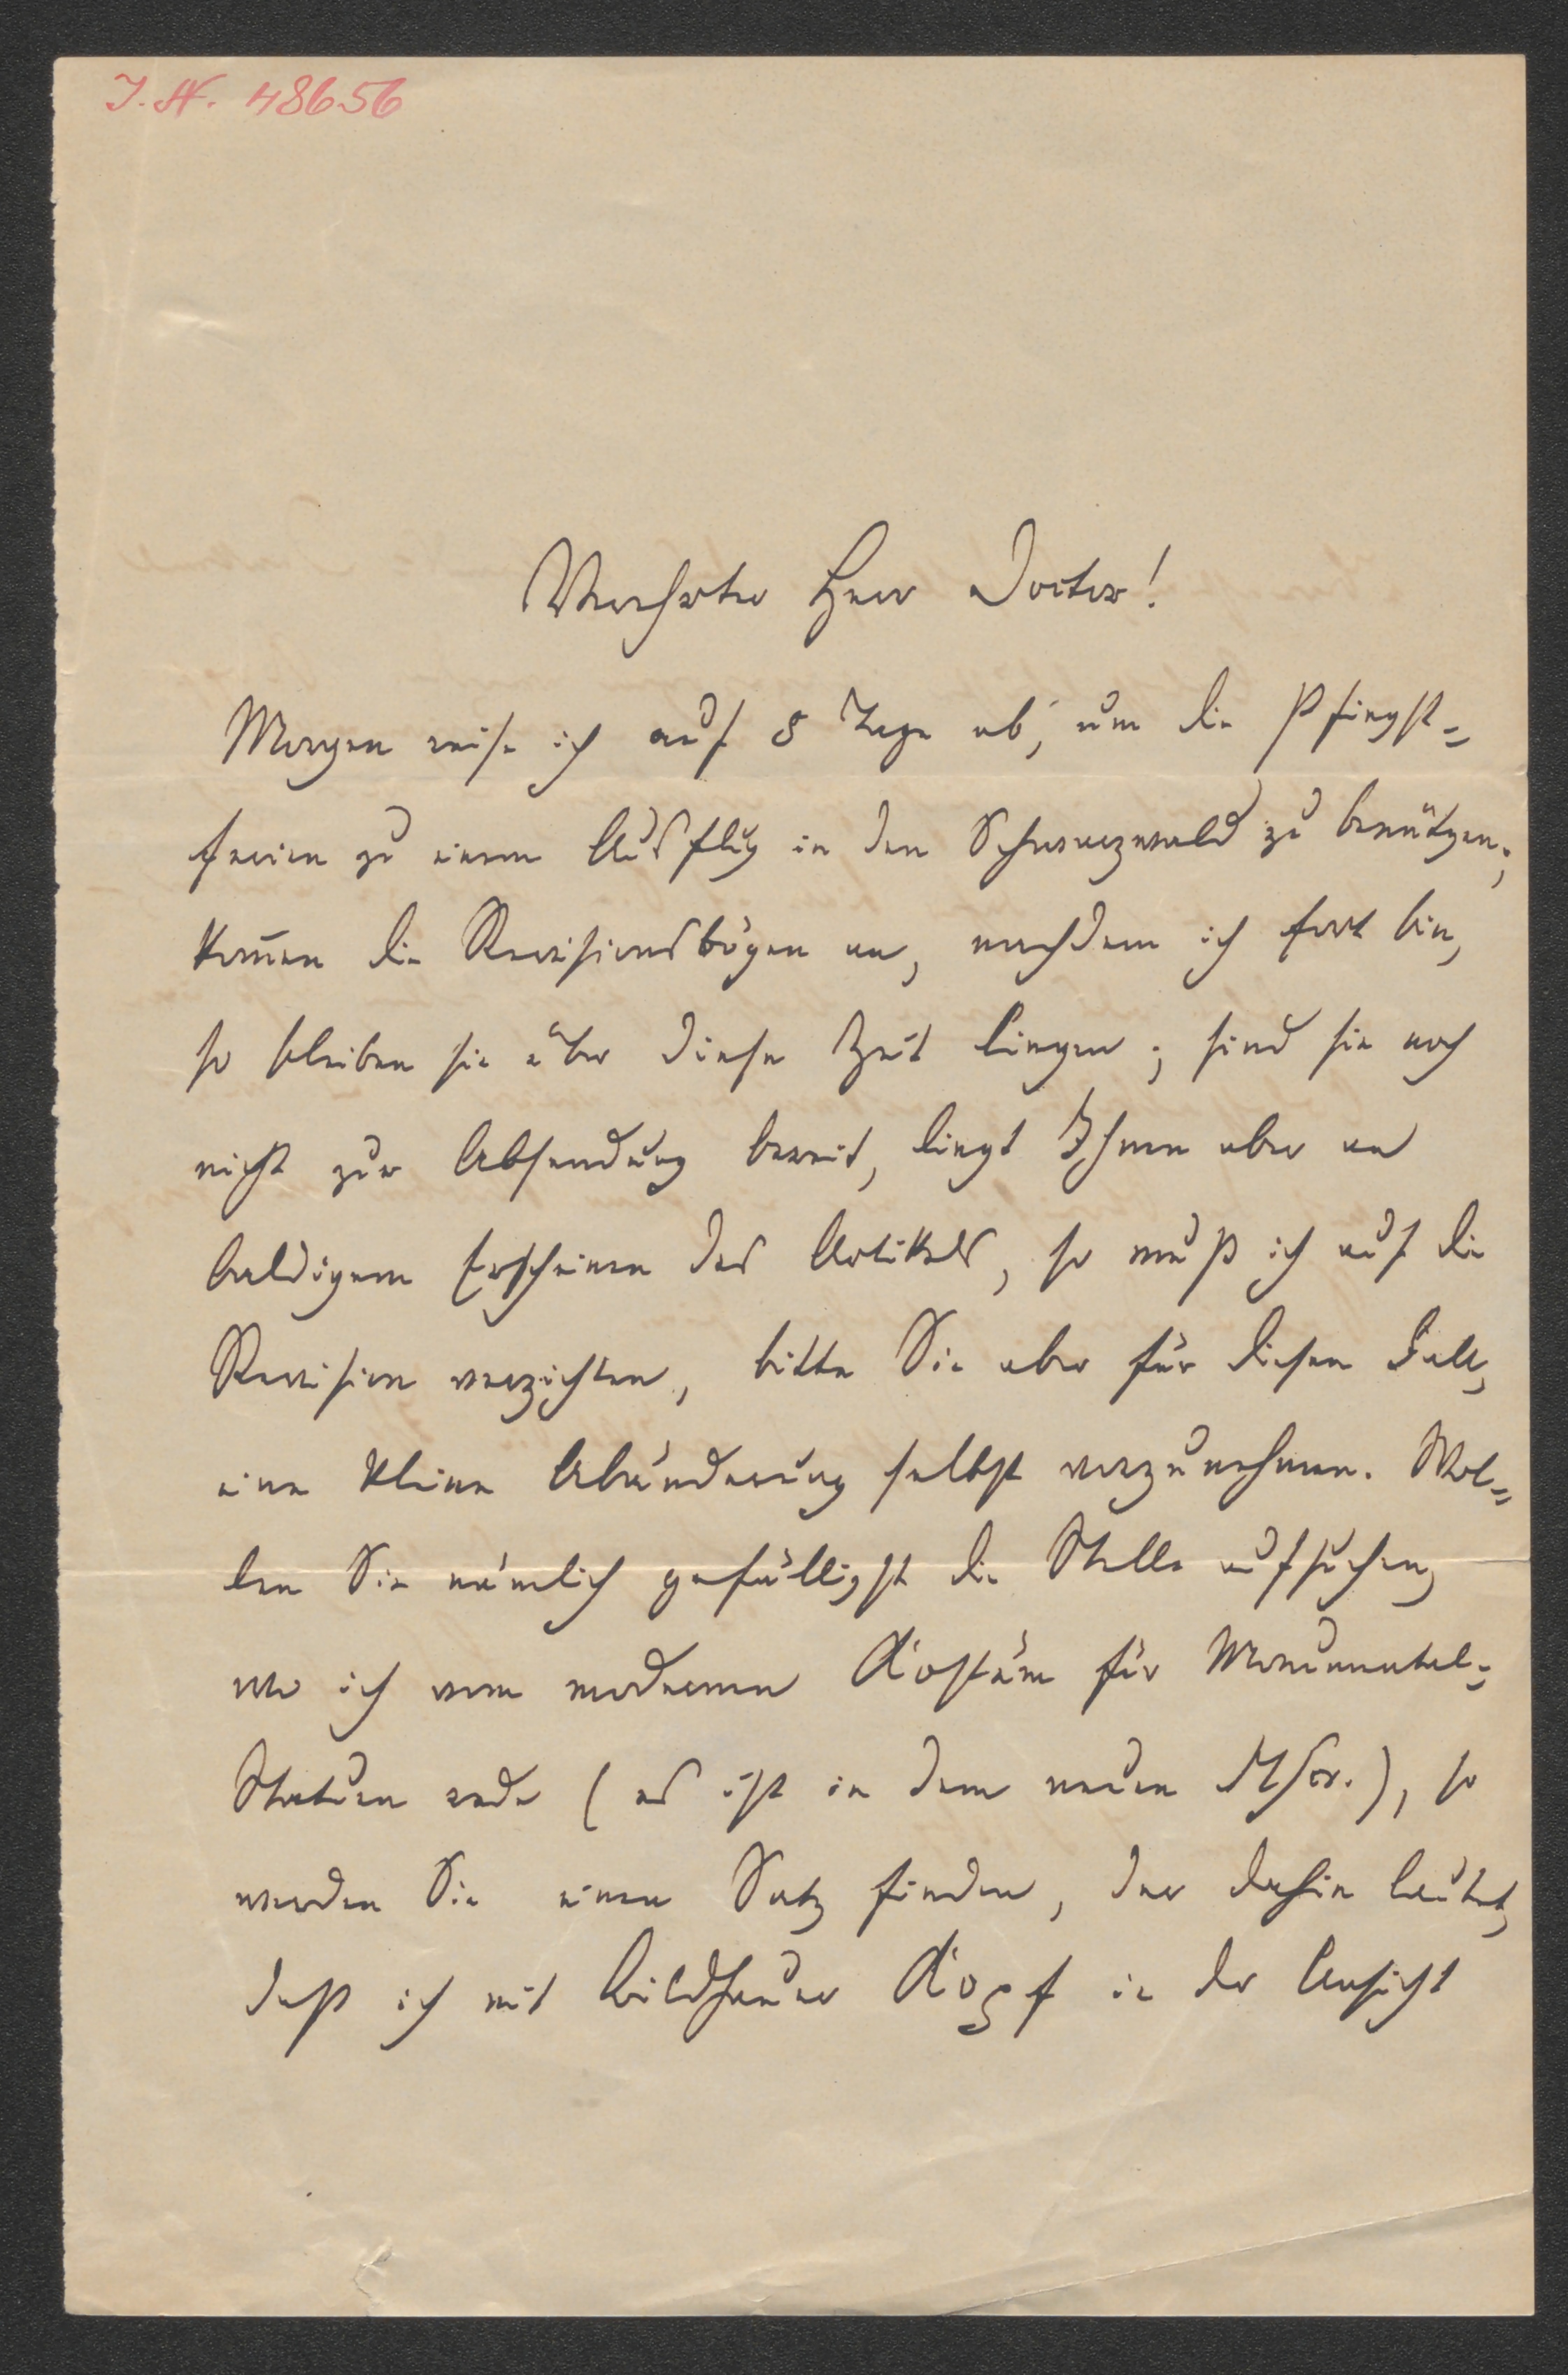 J. N. 48656
Verehrter Herr Doctor!
Morgen reise ich auf 8 Tage ab, um die Pfingst=
ferien zu einem Ausflug in den Schwarzwald zu benützen;
kom̅en die Revisionsbögen an, nachdem ich fort bin,
so bleiben sie über diese Zeit liegen; sind sie noch
nicht zur Absendung bereit, liegt Ihnen aber an
baldigem Erscheinen des Artikels, so muß ich auf die
Revision verzichten, bitte Sie aber für diesen Fall,
eine kleine Abänderung selbst vorzunehmen. Wol=
len Sie nämlich gefälligst die Stelle aufsuchen,
wo ich vom modernen Kostüm für Monumental=
Statuen rede (es ist in dem neuen Mscr.), so
werden Sie einen Satz finden, der dahin lautet,
daß ich mit Bildhauer Kopf in der Ansicht